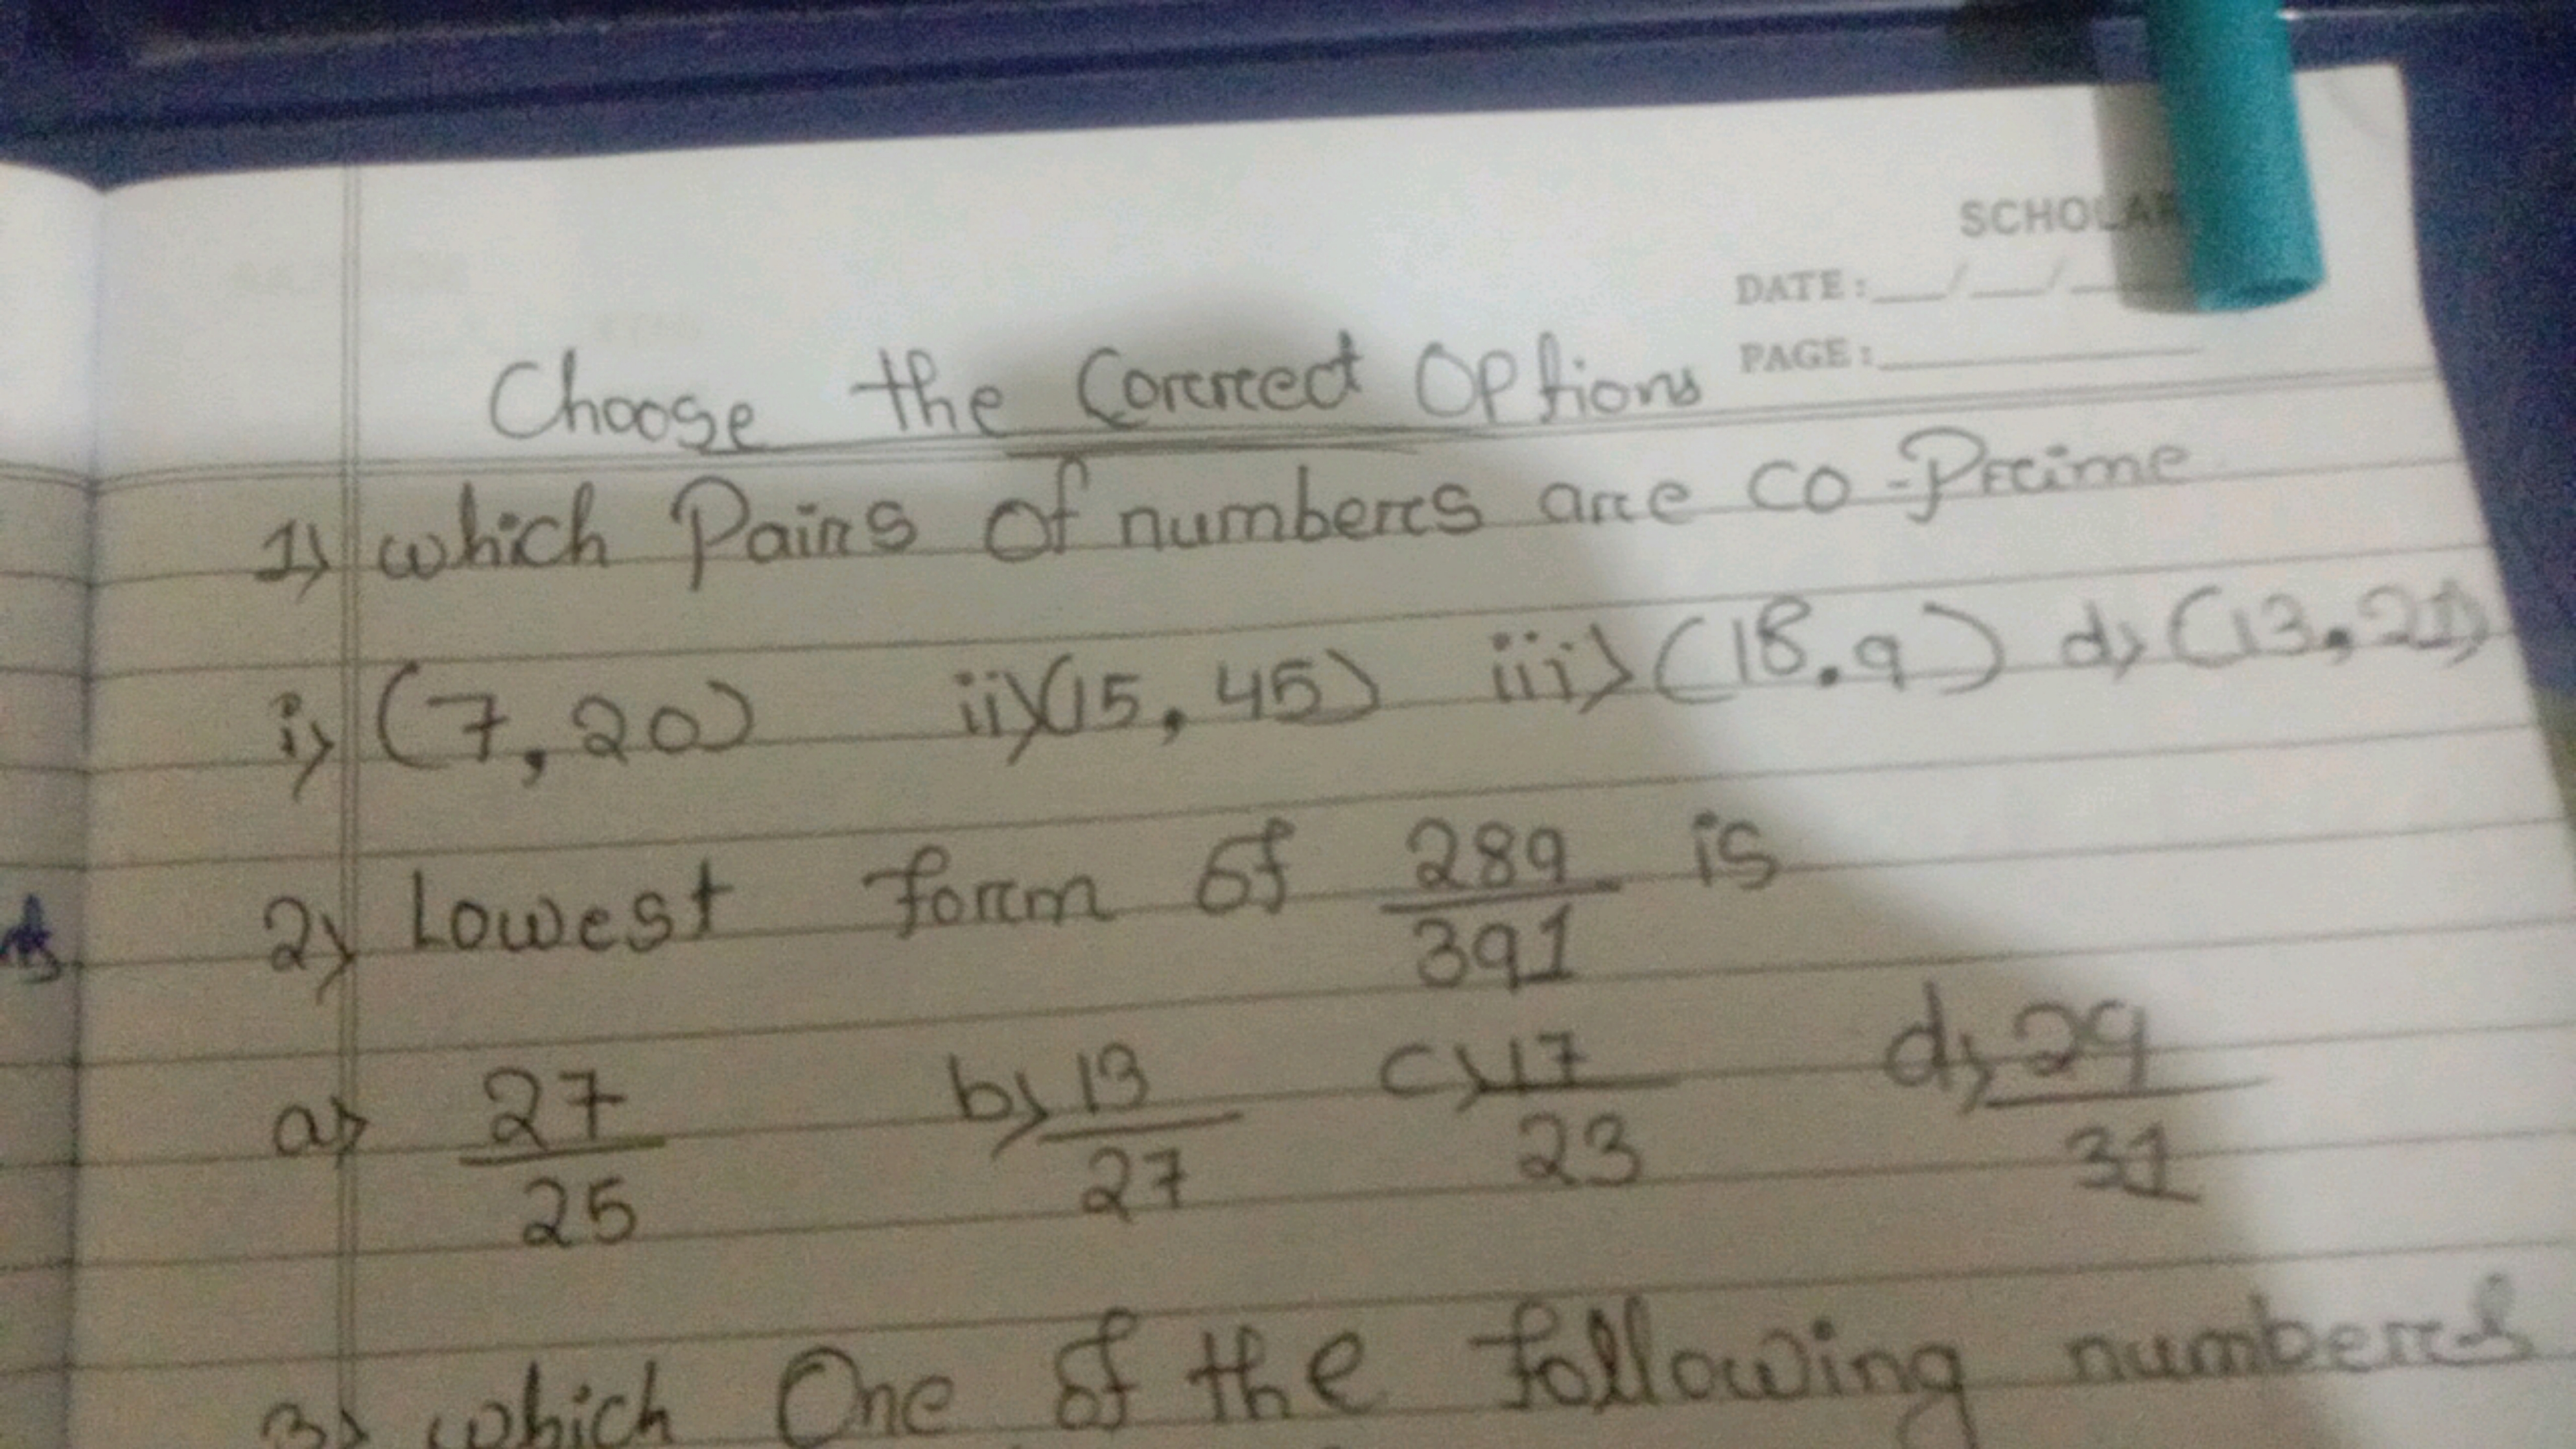 SCHOLAR
DATE: __/__/__
PAGE:
Choose the Correct Options
1) which Pairs of numbers are co-Prime
i) (7, 20) ii) (15, 45) iii) (18, 9) d) (13, 21)
2) Lowest form of 289/391 is
a) 27/25 b) 13/27 c) 17/23 d) 29/31
3) which One of the following numbers